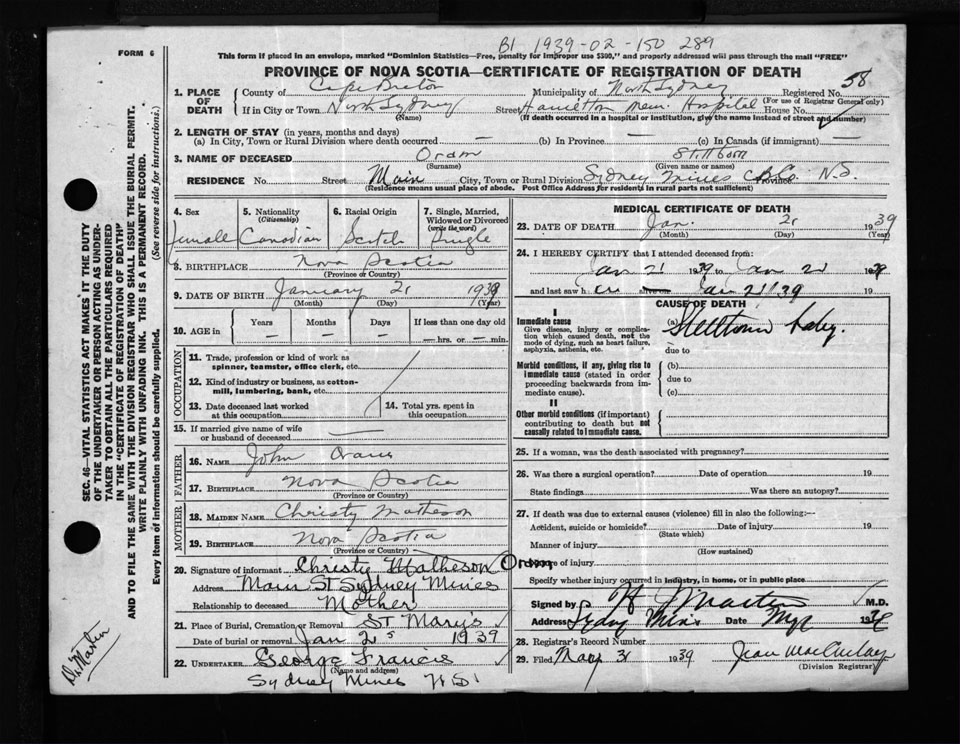 B1 1939-02-150 289
FORM 6
This form if placed in an envelope, marked "Dominion Statistics—Free, penalty for improper use $300," and properly addressed will pass through the mail "FREE"
PROVINCE OF NOVA SCOTIA—CERTIFICATE OF REGISTRATION OF DEATH
58
1. PLACE OF DEATH
County of Cape Breton Municipality of North Sydney Registered No.
(For use of Registrar General only)
If in City or Town North Sydney Street Hamilton Mem. Hospital House No.
(Name) (If death occurred in a hospital or institution, give the name instead of street and number)
2. LENGTH OF STAY (in years, months and days)
(a) In City, Town or Rural Division where death occurred — (b) In Province — (c) In Canada (if immigrant) —
3. NAME OF DECEASED Oram Stillborn
(Surname) (Given name or names)
RESIDENCE No. Street Main City, Town or Rural Division Sydney Mines C.B.Co. Province N.S.
(Residence means usual place of abode. Post Office Address for residents in rural parts not sufficient)
4. Sex female
5. Nationality (Citizenship) Canadian
6. Racial Origin Scotch
7. Single, Married, Widowed or Divorced (write the word) Single
8. BIRTHPLACE Nova Scotia
(Province or Country)
9. DATE OF BIRTH January 21 1939
(Month) (Day) (Year)
10. AGE in Years Months Days If less than one day old
— — — — hrs. or — min.
OCCUPATION
11. Trade, profession or kind of work as spinner, teamster, office clerk, etc.
12. Kind of industry or business, as cotton-mill, lumbering, bank, etc.
13. Date deceased last worked at this occupation
14. Total yrs. spent in this occupation
15. If married give name of wife or husband of deceased —
FATHER
16. NAME John Oram
17. BIRTHPLACE Nova Scotia
(Province or Country)
MOTHER
18. MAIDEN NAME Christy Matheson
19. BIRTHPLACE Nova Scotia
(Province or Country)
20. Signature of informant Christie Matheson Oram
Address Main St Sydney Mines
Relationship to deceased Mother
21. Place of Burial, Cremation or Removal St Mary's
Date of burial or removal Jan 2 1939
22. UNDERTAKER George Francis
(Name and address)
Sydney Mines N S
MEDICAL CERTIFICATE OF DEATH
23. DATE OF DEATH Jan. 21 1939
(Month) (Day) (Year)
24. I HEREBY CERTIFY that I attended deceased from:
Jan 21 1939 to Jan 21 1939
and last saw h er alive on Jan 21/39
CAUSE OF DEATH
I
Immediate cause
Give disease, injury or complication which caused death, not the mode of dying, such as heart failure, asphyxia, asthenia, etc.
(a) Stillborn baby.
due to
Morbid conditions, if any, giving rise to immediate cause (stated in order proceeding backwards from immediate cause).
(b)
due to
(c)
II
Other morbid conditions (if important) contributing to death but not causally related to immediate cause.
25. If a woman, was the death associated with pregnancy?
26. Was there a surgical operation? Date of operation 19
State findings Was there an autopsy?
27. If death was due to external causes (violence) fill in also the following:—
Accident, suicide or homicide? Date of injury 19
(State which)
Manner of injury
(How sustained)
Nature of injury
Specify whether injury occurred in industry, in home, or in public place
Signed by Martin M.D.
Address Sydney Mines Date 19
28. Registrar's Record Number
29. Filed May 31 1939 Jean MacAulay
(Division Registrar)
SEC. 46—VITAL STATISTICS ACT MAKES IT THE DUTY
OF THE UNDERTAKER OR PERSON ACTING AS UNDER-
TAKER TO OBTAIN ALL THE PARTICULARS REQUIRED
IN THE "CERTIFICATE OF REGISTRATION OF DEATH"
AND TO FILE THE SAME WITH THE DIVISION REGISTRAR WHO SHALL ISSUE THE BURIAL PERMIT.
WRITE PLAINLY WITH UNFADING INK. THIS IS A PERMANENT RECORD.
Every item of information should be carefully supplied. (See reverse side for instructions.)
Dr Martin